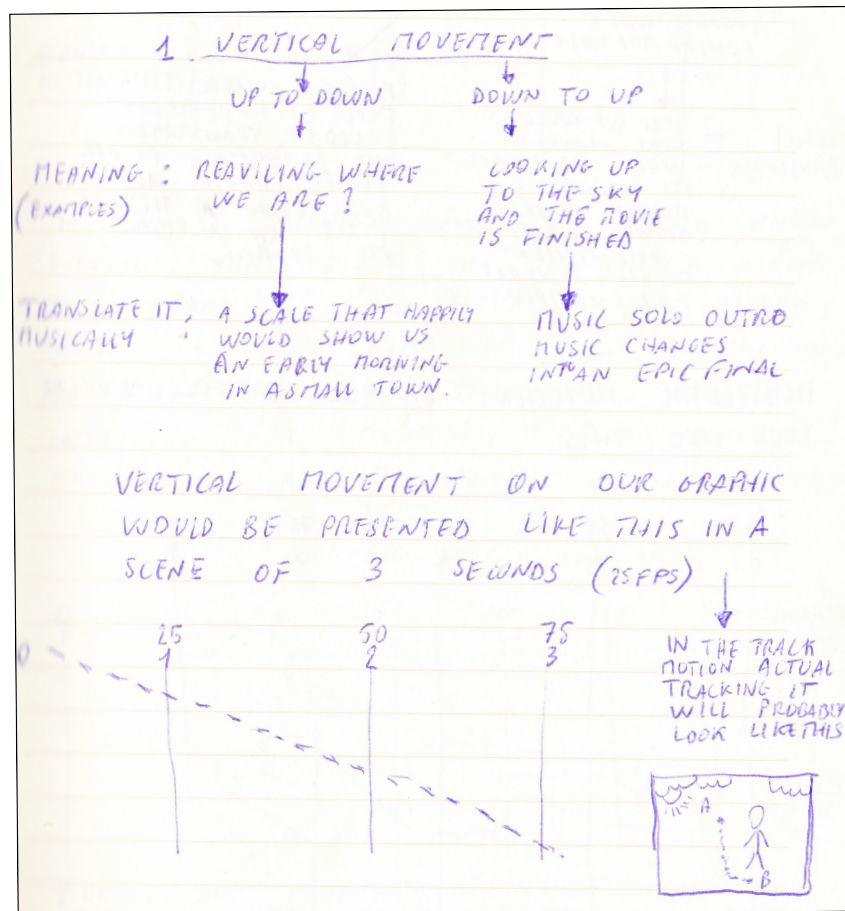 1 VERTICAL MOVEMENT
UP TO DOWN
DOWN TO UP
MEANING :
(EXAMPLES)
REAVILING WHERE
WE ARE?
LOOKING UP
TO THE SKY
AND THE MOVIE
IS FINISHED
TRANSLATE IT,
MUSICALLY :
A SCALE THAT HAPPILY
WOULD SHOW US
AN EARLY MORNING
IN A SMALL TOWN.
MUSIC SOLO OUTRO
MUSIC CHANGES
INTO AN EPIC FINAL
VERTICAL MOVEMENT ON OUR GRAPHIC
WOULD BE PRESENTED LIKE THIS IN A
SCENE OF 3 SECONDS (25FPS)
0
25
1
50
2
75
3
IN THE TRACK
MOTION ACTUAL
TRACKING IT
WILL PROBABLY
LOOK LIKE THIS
A
B